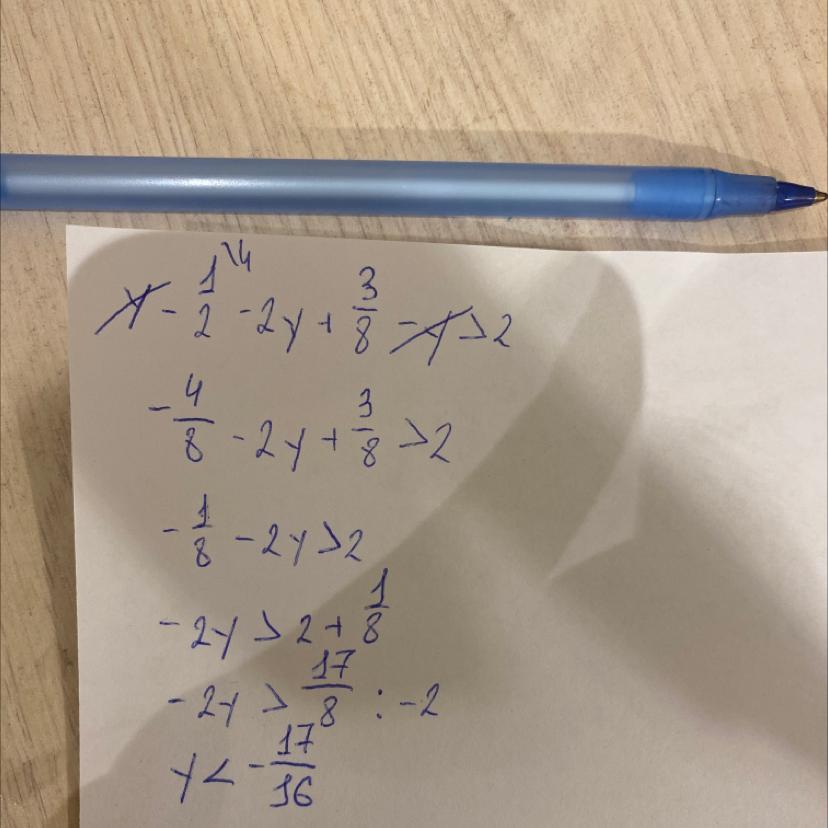 y - 1/2 \4 - 2y + 3/8 - y > 2
- 4/8 - 2y + 3/8 > 2
- 1/8 - 2y > 2
- 2y > 2 + 1/8
- 2y > 17/8 : -2
y < - 17/16